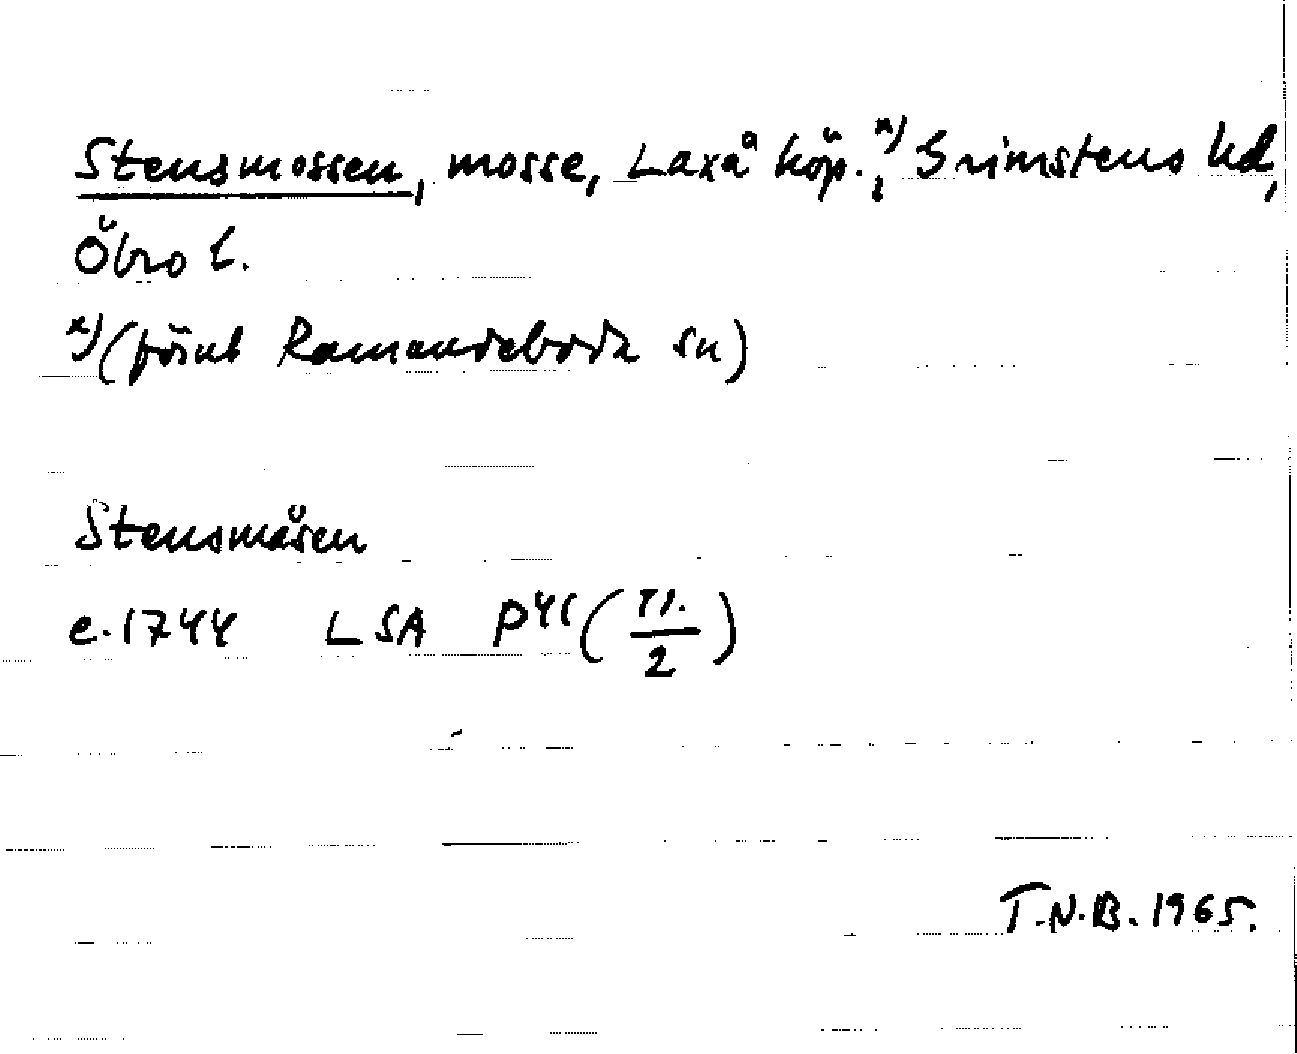 Stensmossen, mosse, Laxå köp.,x) Grimstens hd,
Öbro l.
x) (förut Ramundeboda sn)
Stensmåsen
e. 1744 LSA P41 (71./2)
T.N.B. 1965.